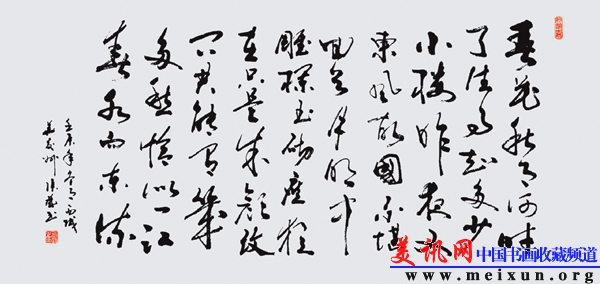 春花秋月何时
了往事知多少
小楼昨夜又
東风故國不堪
回首月明中
雕栏玉砌应犹
在只是朱颜改
问君能有几
多愁恰似一江
春水向东流
美讯网 中国书画收藏频道
www.meixun.org